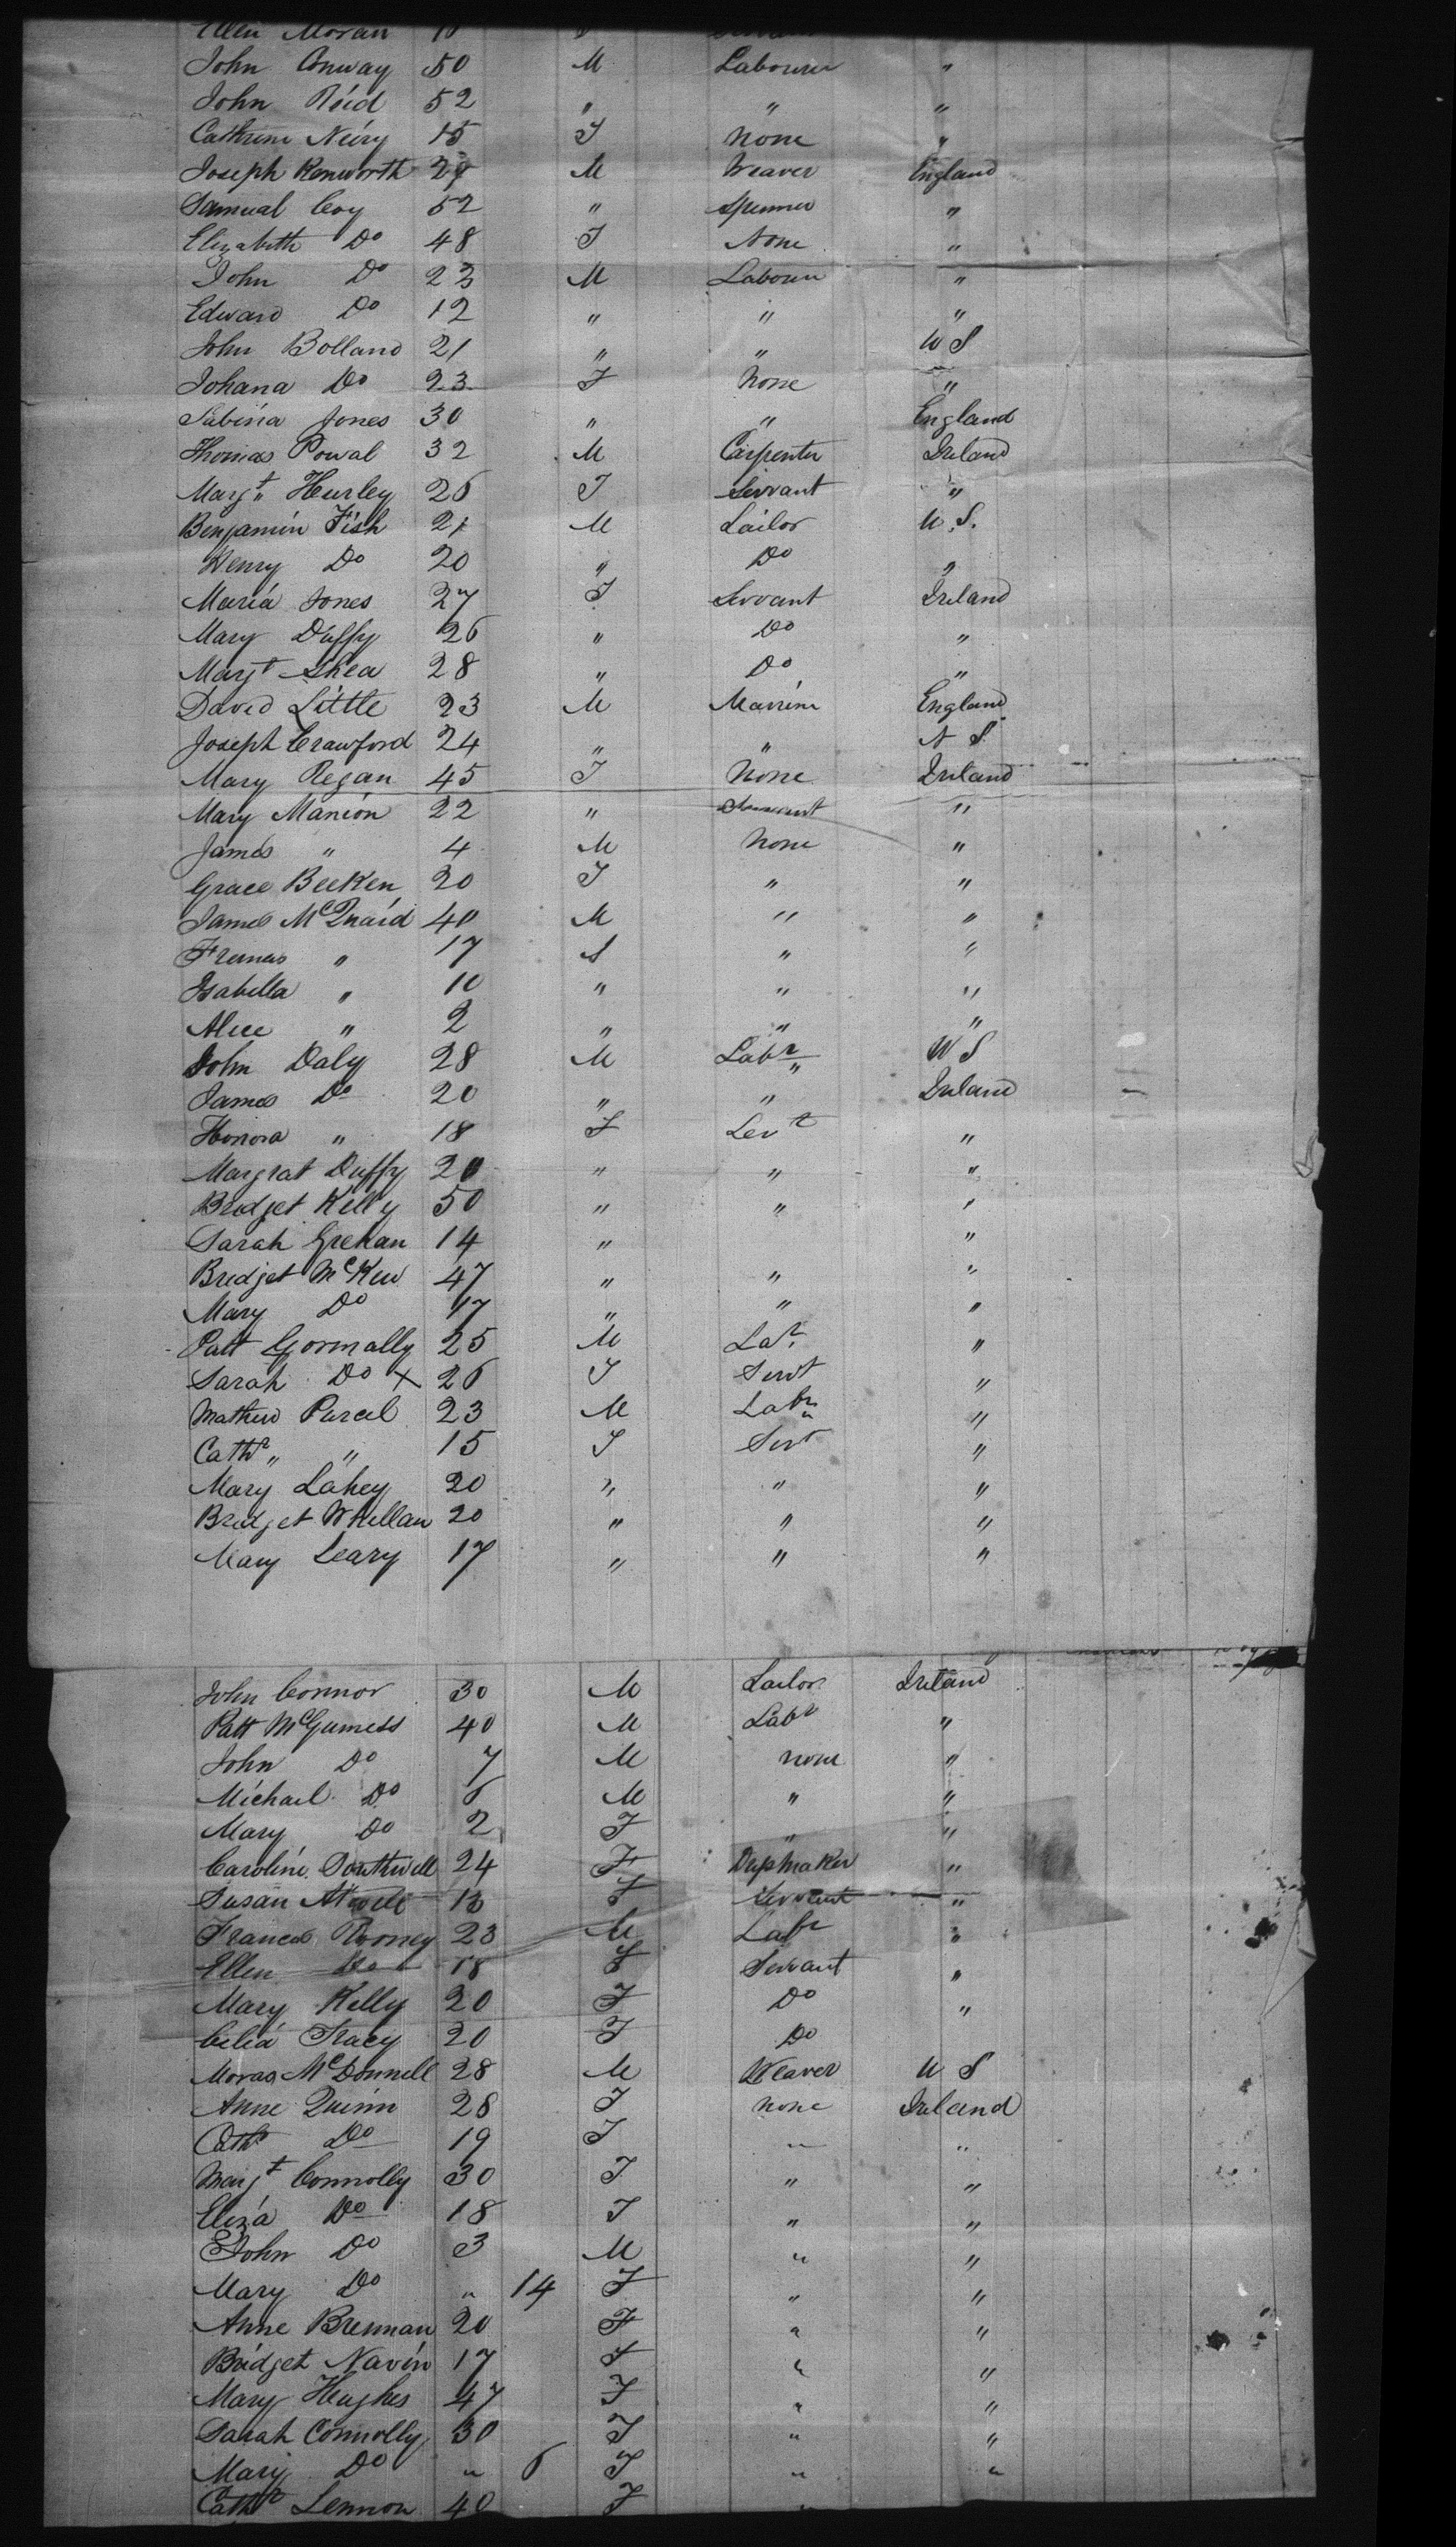 Ellen Moran 18
John Conway 50 M Labourer "
John Reid 52 " " "
Cathrine Neiry 15 F None "
Joseph Kenworth 29 M Weaver England
Samual Coy 52 " Spinner "
Elizabeth Do 48 F None "
John Do 23 M Labourer "
Edward Do 12 " " "
John Bolland 21 " " U S
Johana Do 23 F None "
Sabina Jones 30 " " England
Thomas Powal 32 M Carpenter Ireland
Margt Hurley 26 F Servant "
Benjamin Fish 21 M Sailor U.S.
Henry Do 20 " Do "
Maria Jones 27 F Servant Ireland
Mary Duffy 26 " Do "
Margt Shea 28 " Do "
David Little 23 M Marrine England
Joseph Crawford 24 " " N S
Mary Regan 45 F None Ireland
Mary Manion 22 " Servant "
James " 4 M None "
Grace Beeken 20 F " "
James McQuaid 40 M " "
" 17 " "
Isabella " 10 " " "
Alice " 2 " " "
John Daly 28 M Labr U S
James Do 20 " " Ireland
Honora " 18 F Servt "
Margrat Duffy 20 " " "
Bridget Kelly 50 " " "
Sarah Grehan 14 " "
Bridget McKew 47 " " "
Mary Do 17 " " "
Patt Gormally 25 M Lar "
Sarah Do x 26 F Servt "
Mathew Purcel 23 M Labr "
Cathr " " 15 F Servt "
Mary Lahey 20 " " "
Bridget Whellan 20 " " "
Mary Leary 17 " " "
John Connor 30 M Sailor Ireland
Patt McGuiness 40 M Labr "
John Do 7 M none "
Michael Do 6 M " "
Mary Do 2 F " "
Caroline Southwell 24 F Depmaker "
Susan Atwell 13 F Servant "
Frances Rooney 23 M Labr "
Ellen Do 18 F Servant "
Mary Kelly 20 F Do "
Celia Tracy 20 F Do
McDonnell 28 M Weaver U S
Anne Quinn 28 F none Ireland
Cathr Do 19 F " "
Margt Connolly 30 F " "
Eliza Do 18 F " "
John Do 3 M " "
Mary Do " 14 F " "
Anne Brennan 20 F " "
Bridget Navin 17 F " "
Mary Hughes 47 F " "
Sarah Connolly 30 F " "
Mary Do " 6 F " "
Cathr Lennon 40 F "